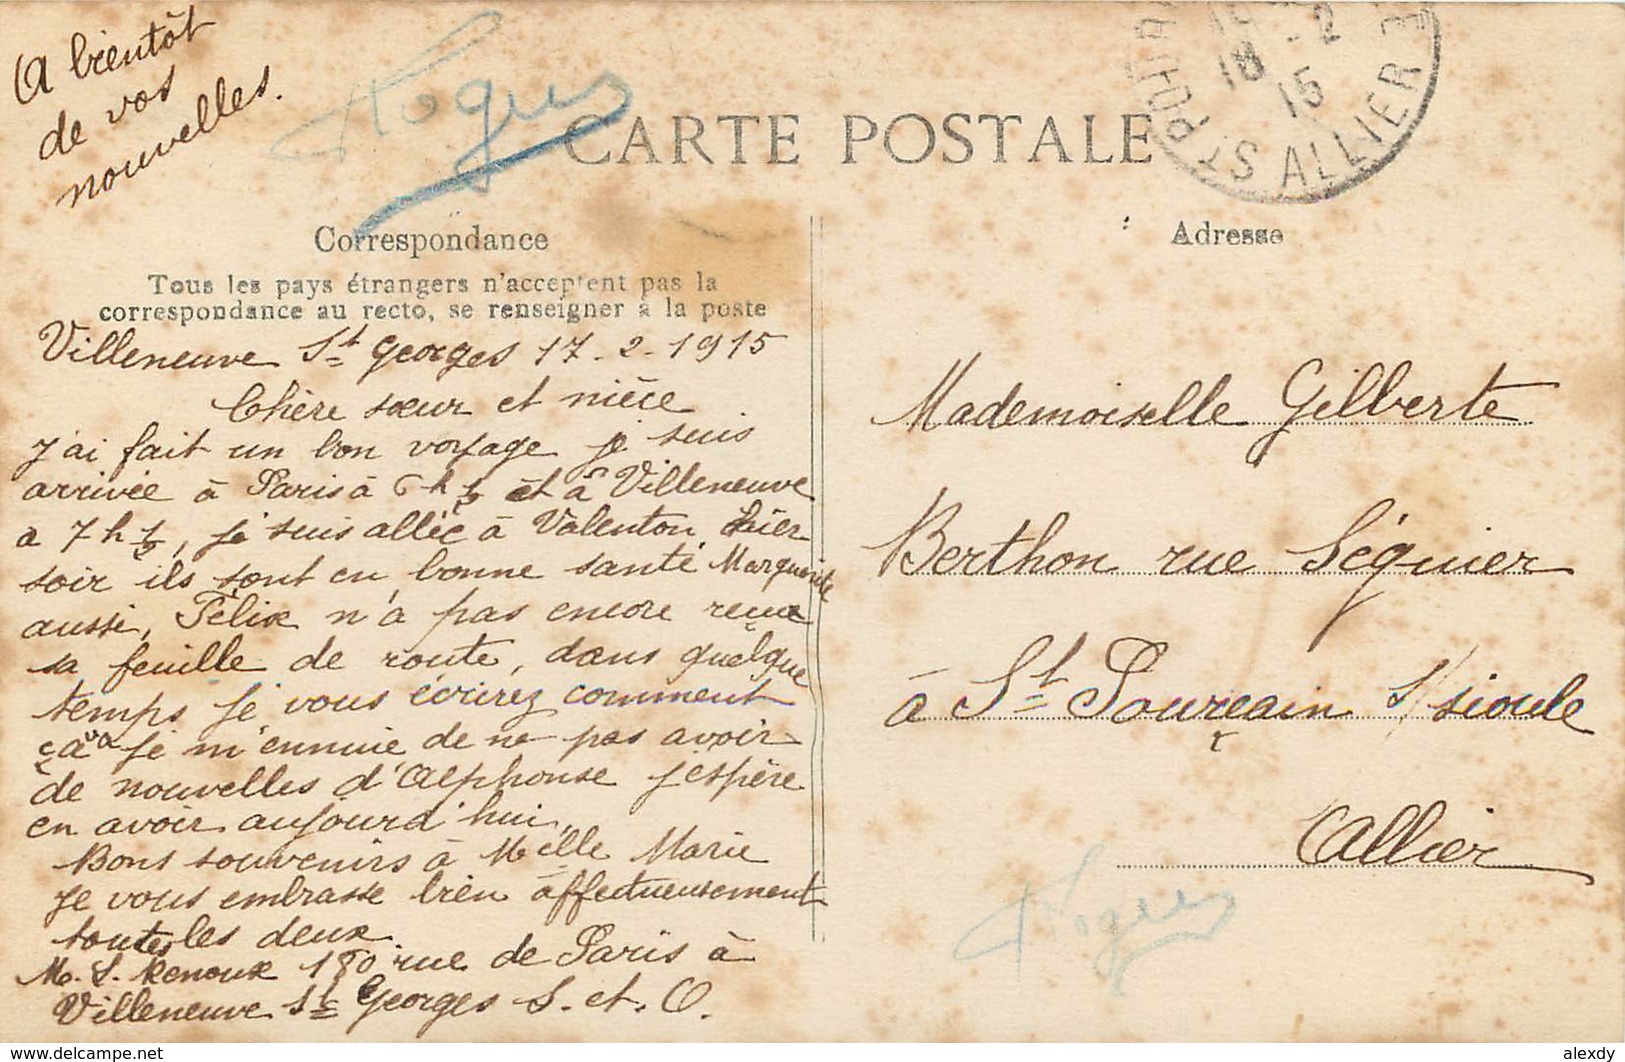 A bientôt
de vos
nouvelles.
CARTE POSTALE
18 -2
15
ST POURÇAIN ALLIER
Correspondance
Tous les pays étrangers n'acceptent pas la
correspondance au recto, se renseigner à la poste
Villeneuve St Georges 17-2-1915
Chère sœur et nièce
J'ai fait un bon voyage je suis
arrivée à Paris à 6 h ½ et à Villeneuve
a 7 h ½, je suis allée à Valenton hier
soir ils sont en bonne santé Marguerite
aussi, Félix n'a pas encore reçue
sa feuille de route, dans quelque
temps je vous écrirez comment
ça va je m'ennuie de ne pas avoir
de nouvelles d'Alphonse j'espère
en avoir aujourd'hui,
Bons souvenirs à Melle Marie
Je vous embrasse bien affectueusement
toutes les deux
M. S. Renoux 180 rue de Paris à
Villeneuve St Georges S. et. O.
Adresse
Mademoiselle Gilberte
Berthon rue Séguier
à St Pourçain s/sioule
Allier
delcampe.net
alexdy